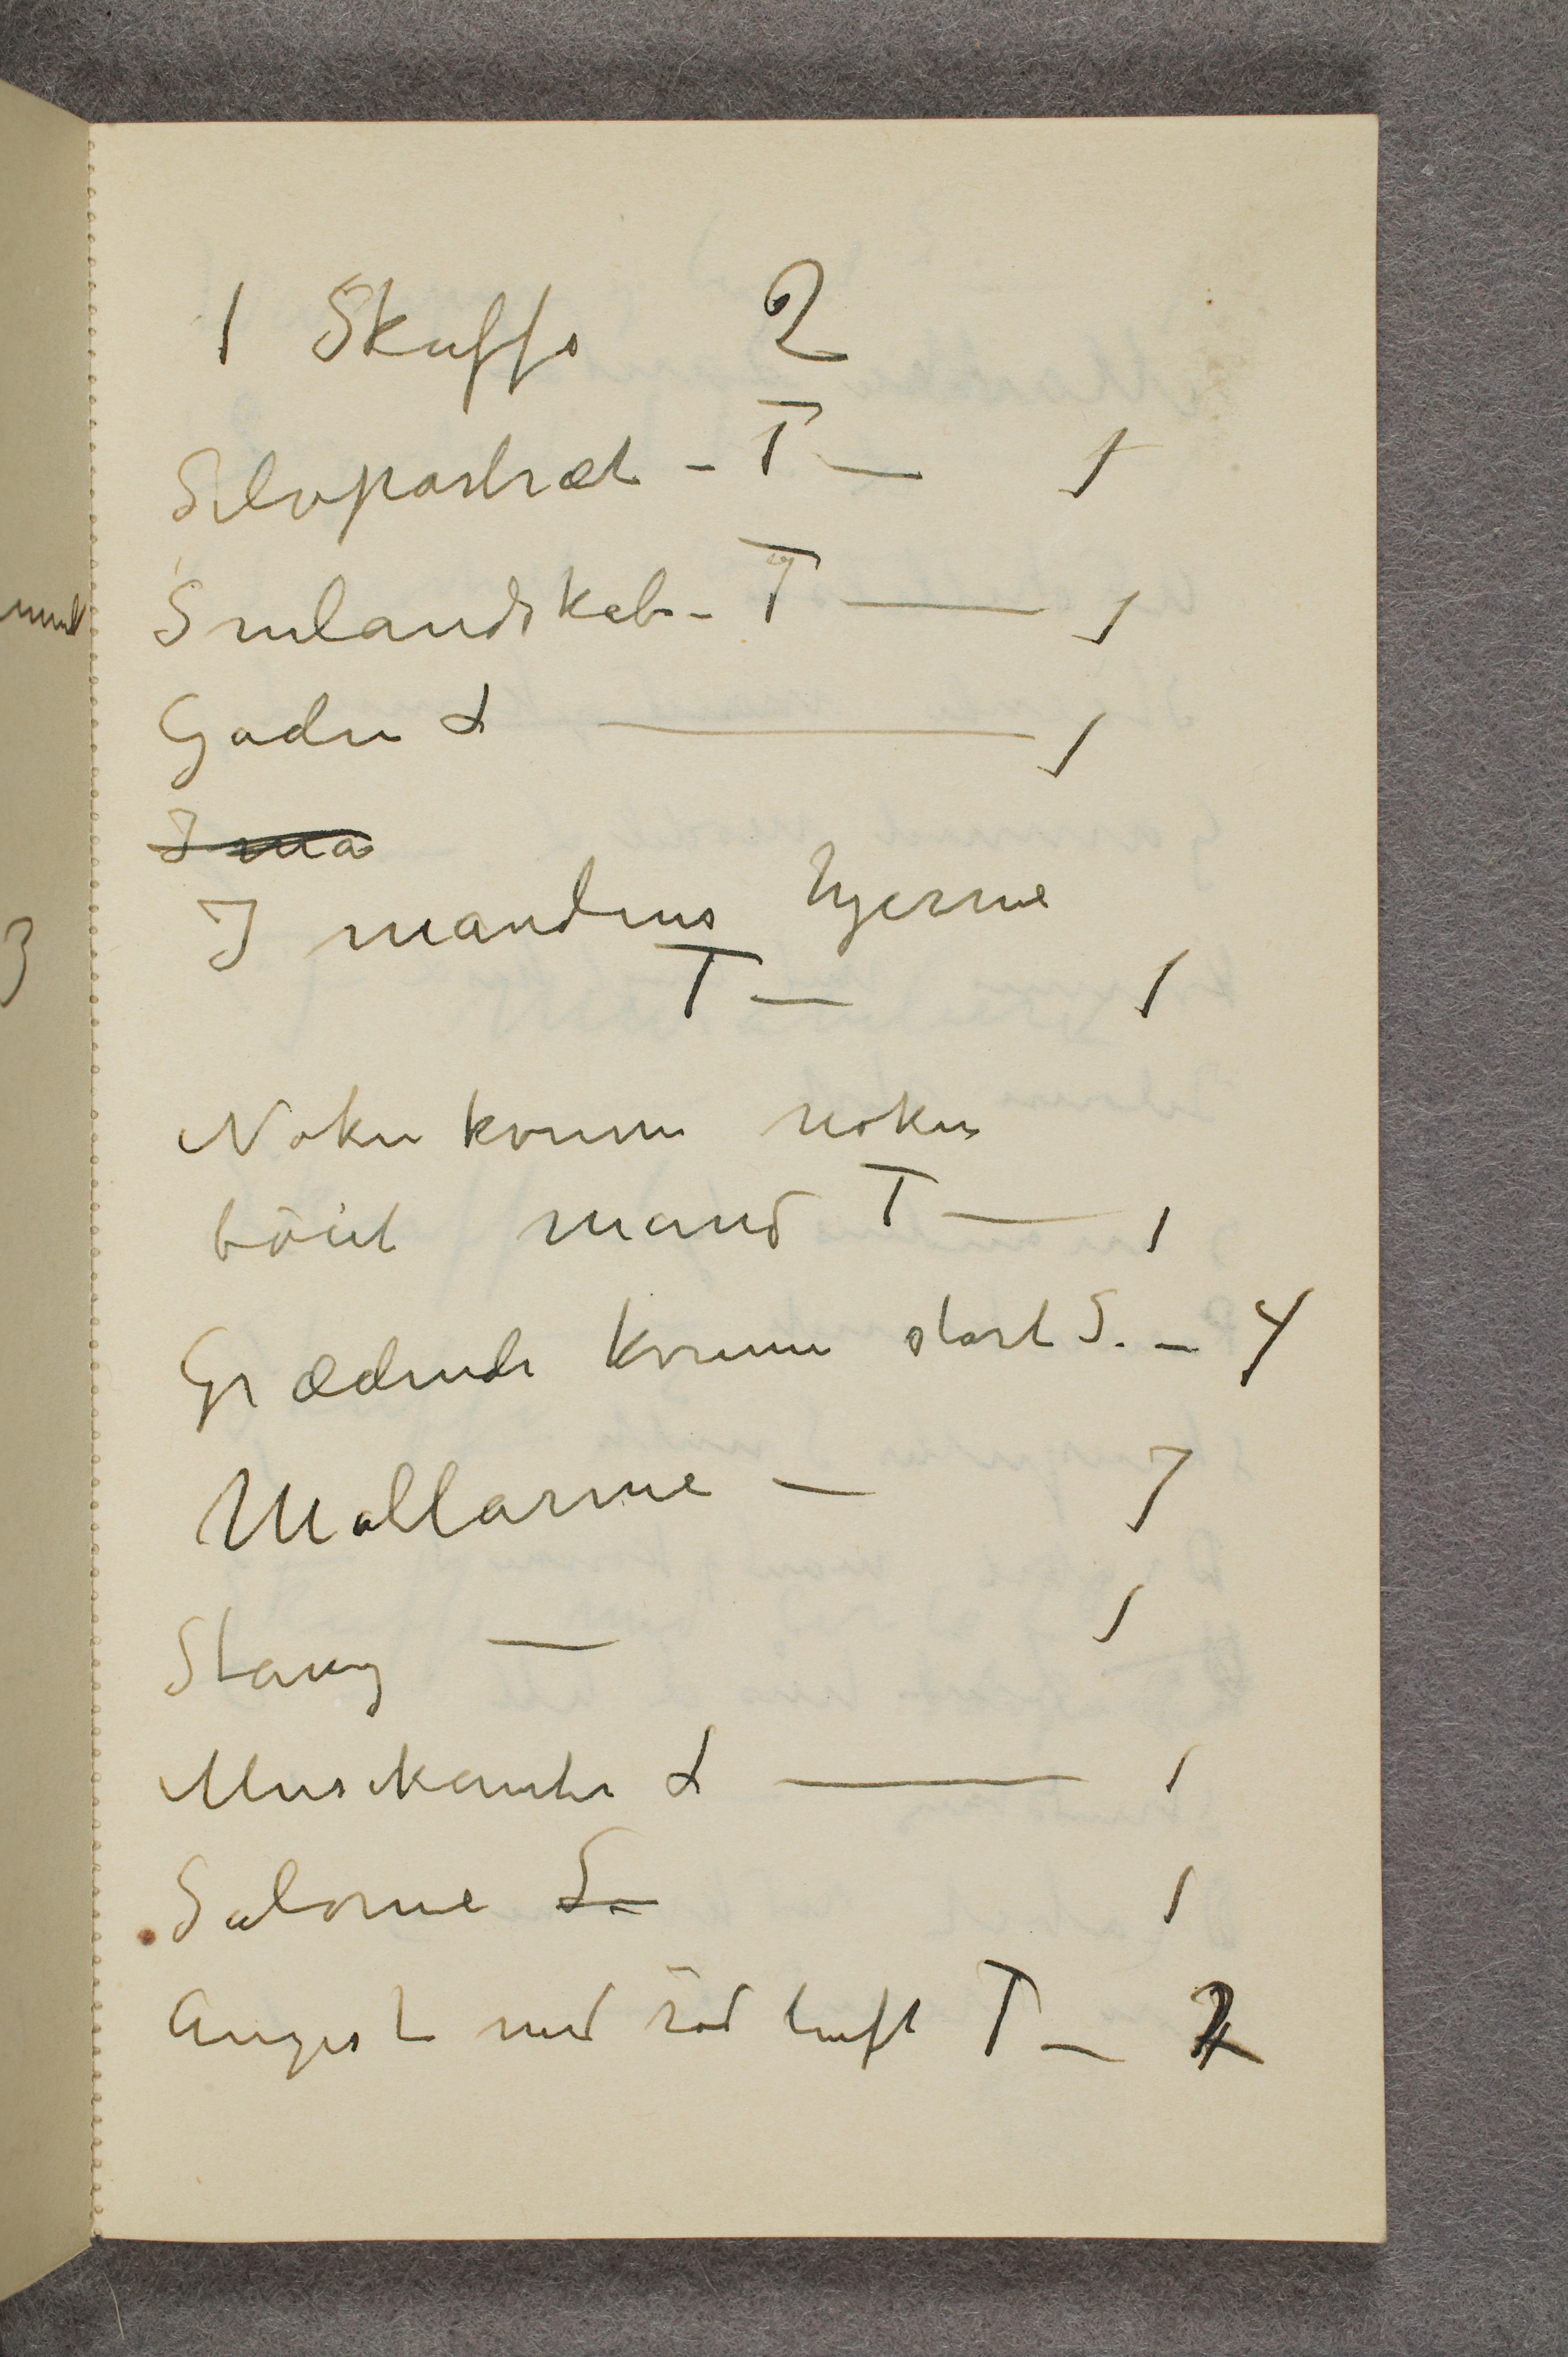 1 Skuffe 2
Selvportræt – T — 1
Snelandskab – T — 1
Gaden L — 1
I ma
I mandens hjerne
T — 1
Nøken kvinne nøken
böiet mand T — 1
Grædende kvinne stort S. – 4
Mallarme — 7
Stang — 1
Musikanter L — 1
Salome S. — 1
Angest med röd luft T – 2